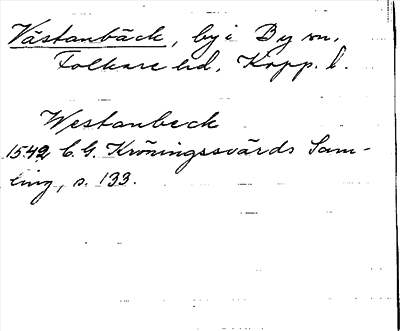 Västanbäck, by i By sn.
Folkare hd, Kopp. l.
Westanbeck
1542 C.G. Kröningssvärds Sam-
ling, s. 133.